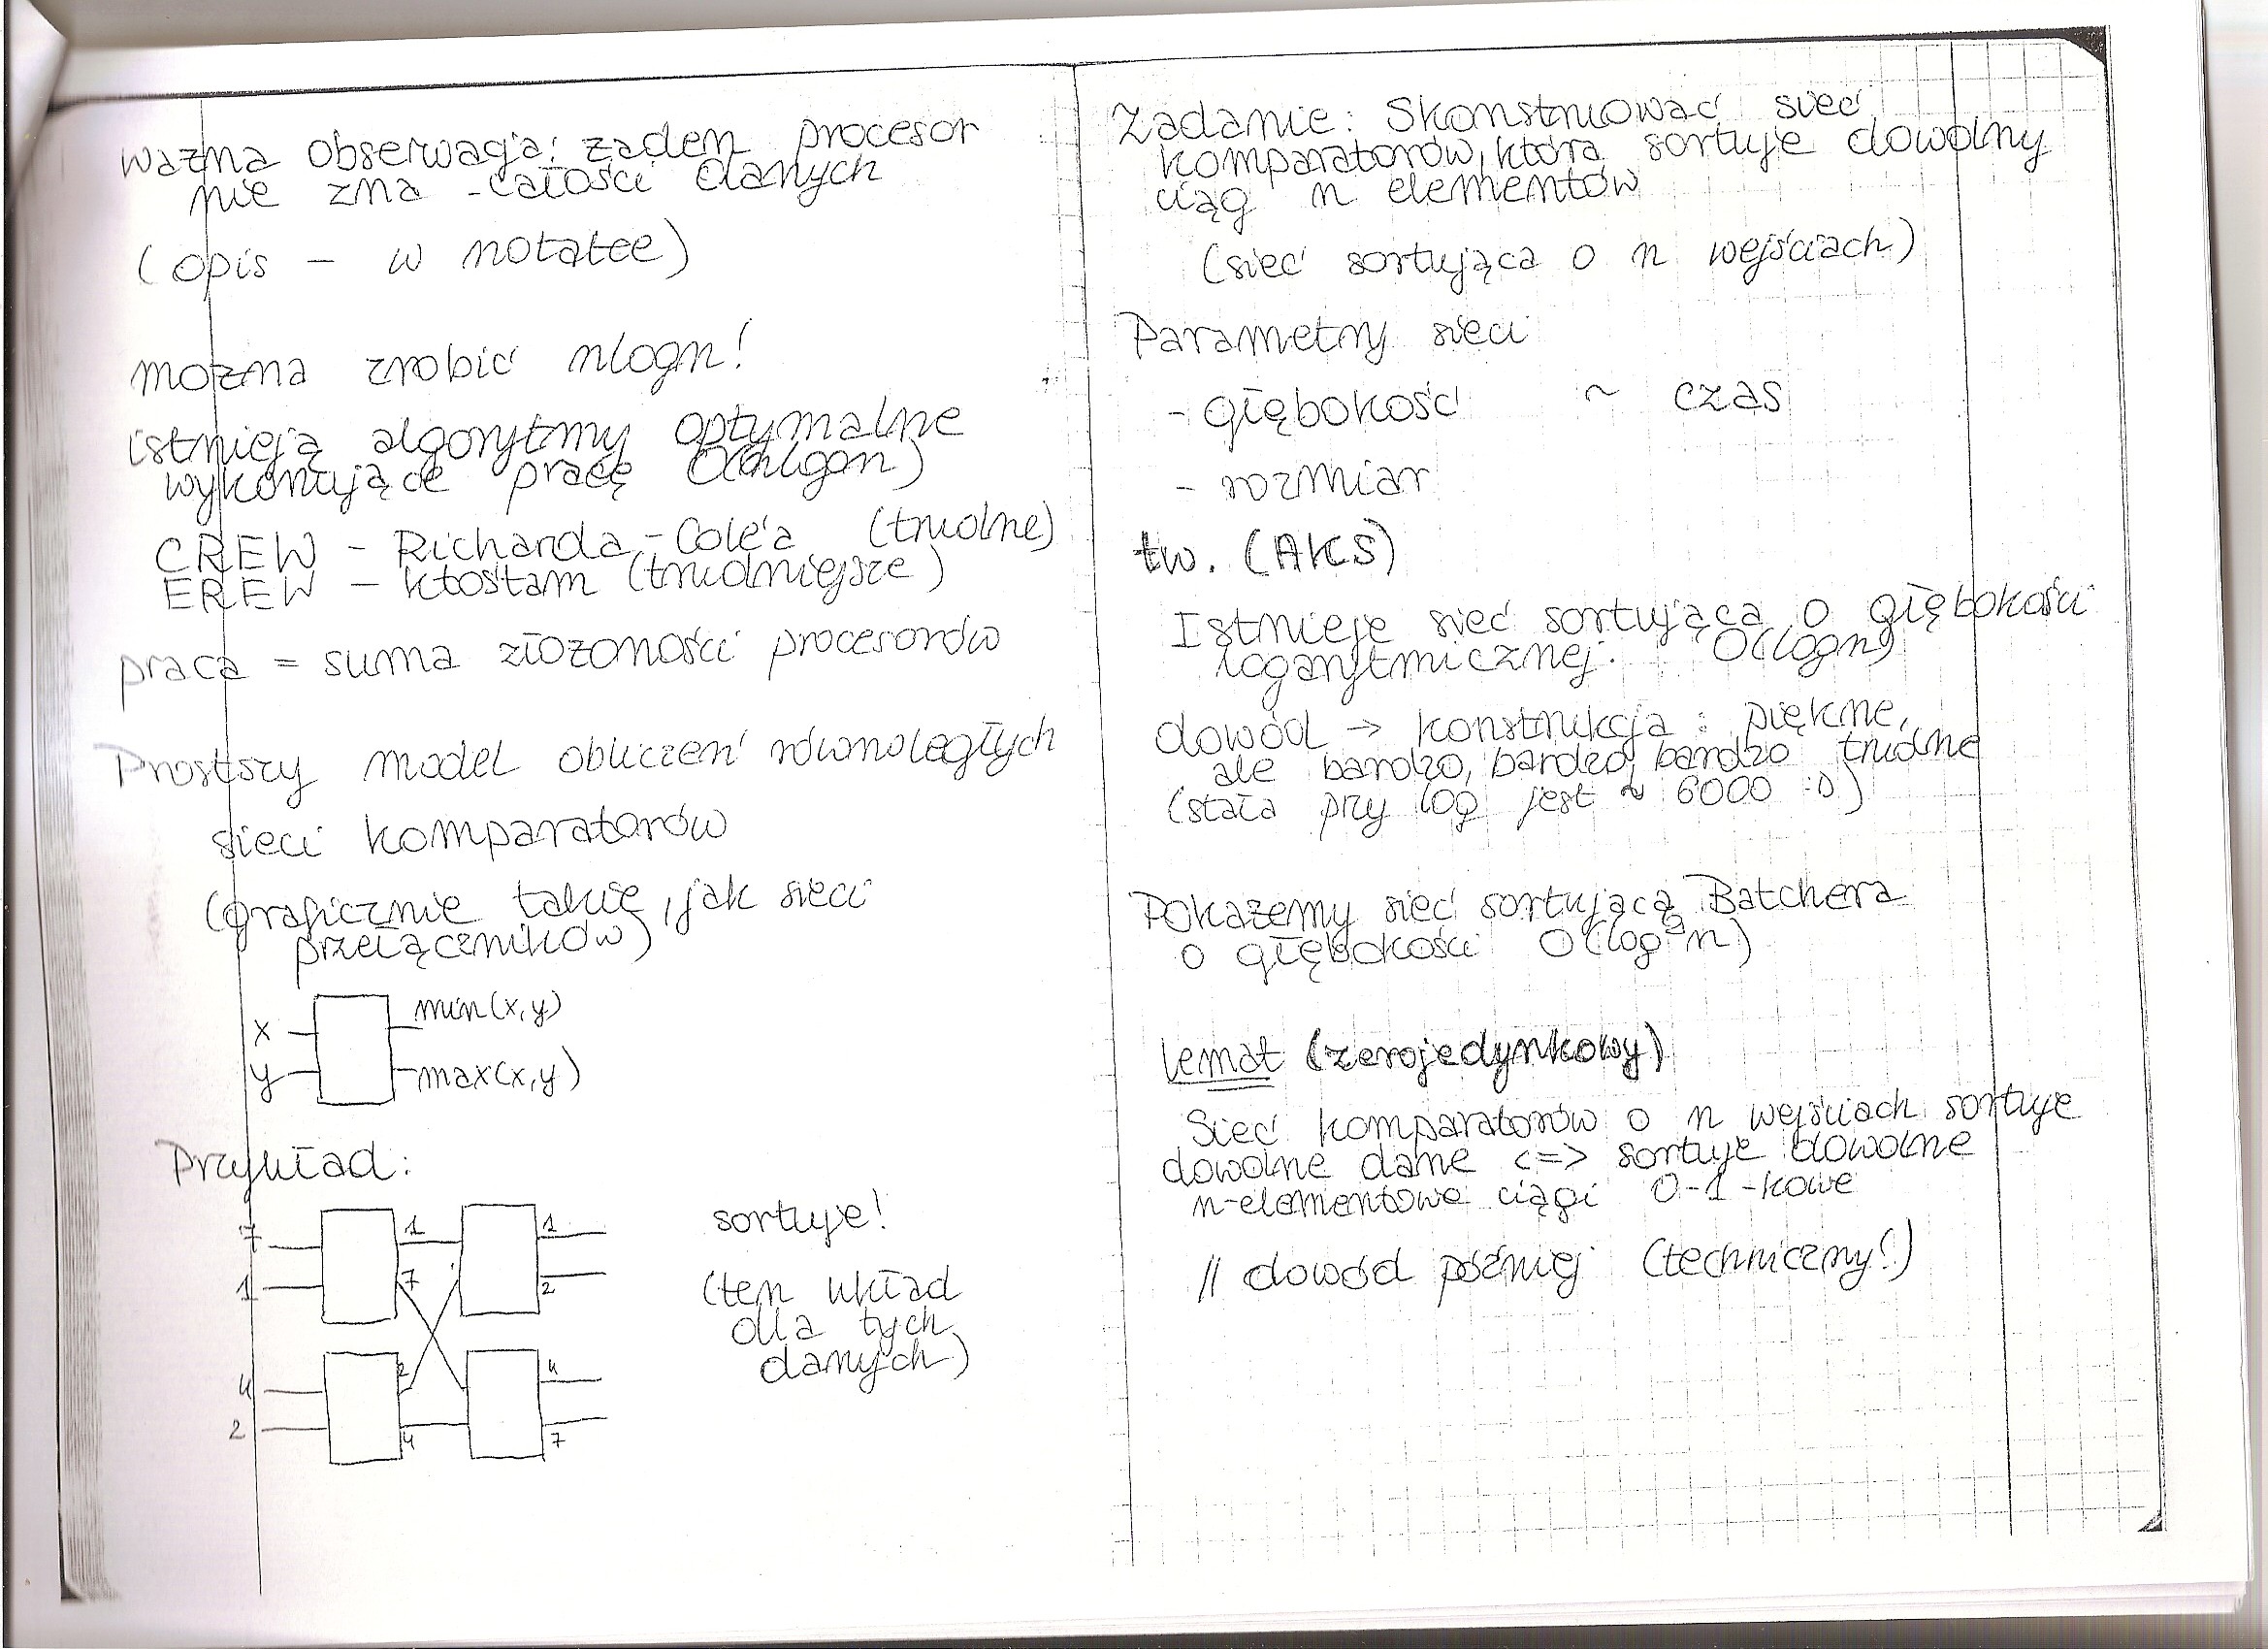 ważna obserwacja: żaden procesor
nie zna całości danych
(opis – w notatce)
można zrobić nlogn!
istnieją algorytmy optymalne
wykonujące pracę O(nlogn)
CREW – Richarda-Cole'a (trudne)
EREW – ktośtam (trudniejsze)
praca = suma złożoności procesorów
Prostszy model obliczeń równoległych
sieci komparatorów
(graficznie takie, jak sieci
przełączników)
x min(x,y)
y max(x,y)
Przykład:
7 1 1
1 7 2
4 2 4
2 4 7
sortuje!
(ten układ
dla tych
danych)
Zadanie: Skonstruować sieć
komparatorów, która sortuje dowolny
ciąg n elementów
(sieć sortująca o n wejściach)
Parametry sieci
- głębokość ~ czas
- rozmiar
tw. (AKS)
Istnieje sieć sortująca o głębokości
logarytmicznej. O(logn)
dowód → konstrukcja: piękne,
ale bardzo, bardzo, bardzo trudne
(stała przy log jest ≈ 6000 :D)
Pokażemy sieć sortującą Batchera
o głębokości O(log²n)
lemat (zerojedynkowy)
Sieć komparatorów o n wejściach sortuje
dowolne dane <=> sortuje dowolne
n-elementowe ciągi 0-1-kowe
// dowód później (techniczny!)